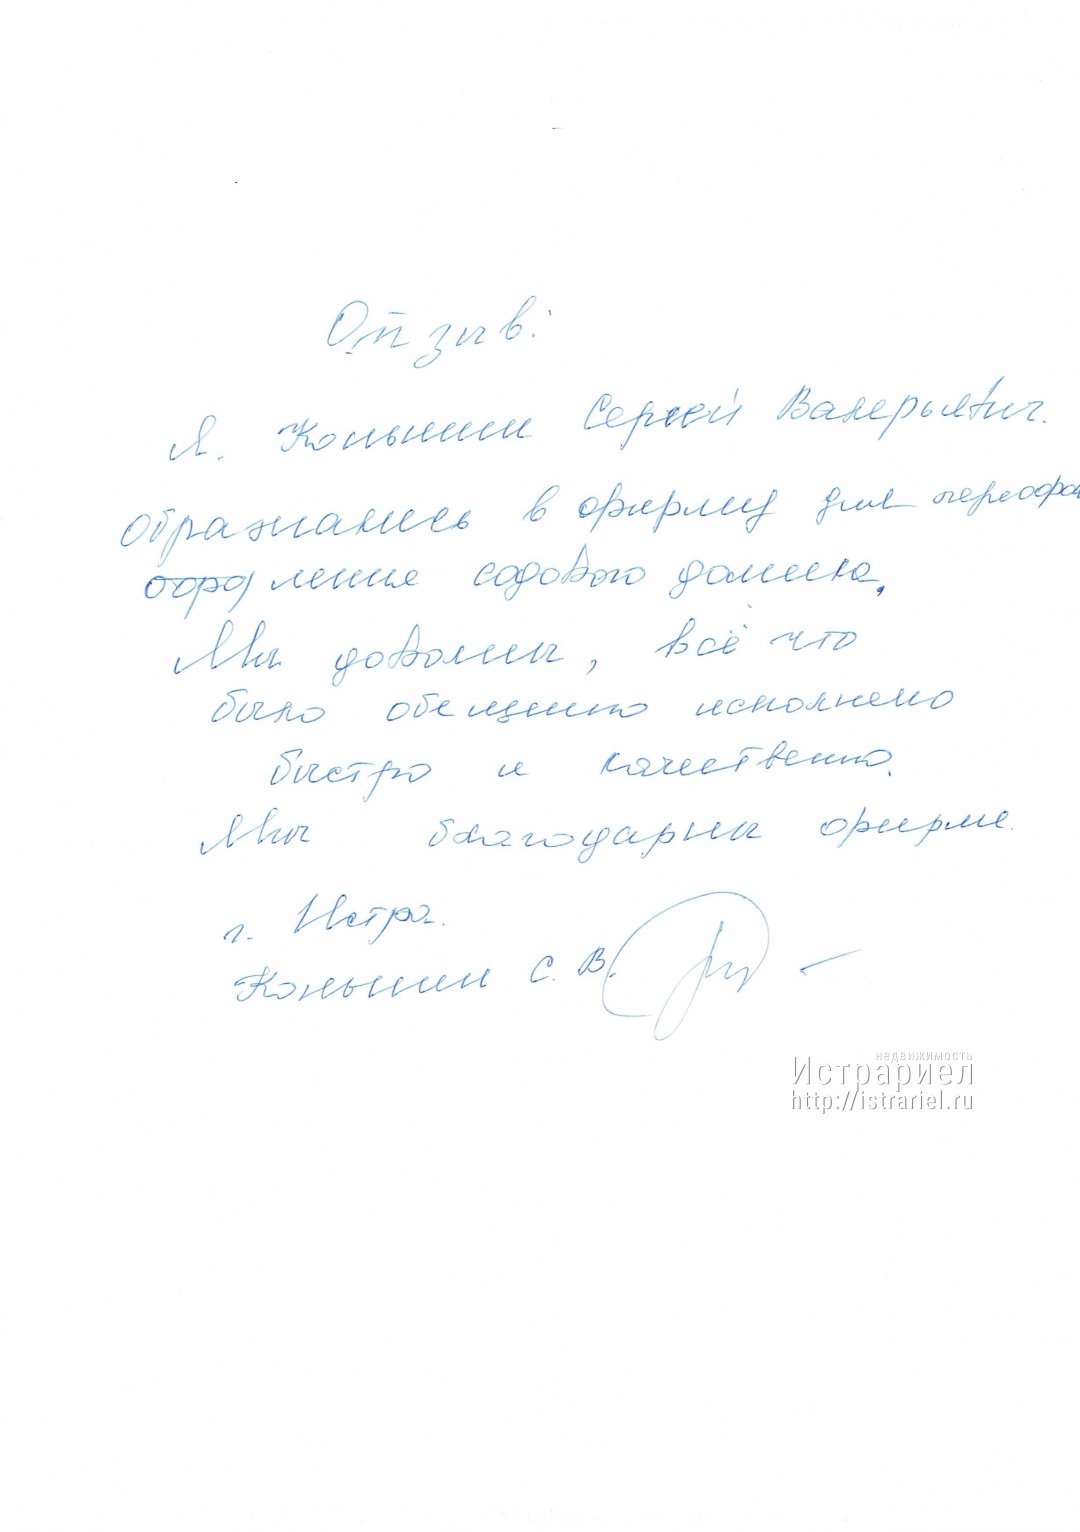 Отзыв:
Я. Коньшин Сергей Валерьевич.
Обращались в фирму для переофор
ления садового домика.
Мы довольны, всё что
было обещено исполнено
быстро и качественно.
Мы благодарны фирме.
г. Истра.
Коньшин С. В.
недвижимость
Истрариел
http://istrariel.ru